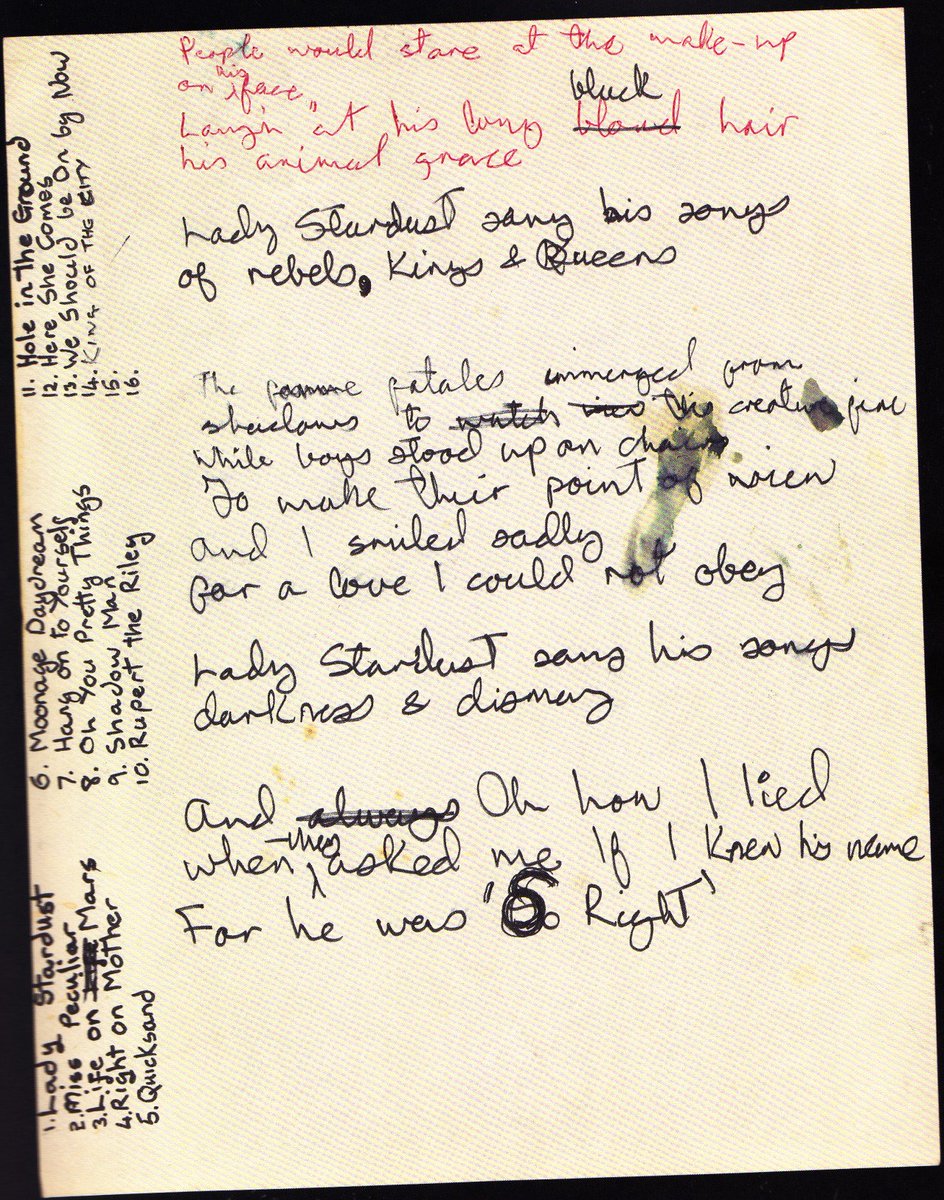 People would stare at the make-up
on his face
Laugh at his long black bloud hair
his animal grace
Lady Stardust sang his songs
of rebels, Kings & Queens
The femme fatales immerged from
shadows to watch this creature fine
While boys stood up on chairs
To make their point of view
And I smiled sadly
for a love I could not obey
Lady Stardust sang his songs
darkness & dismay
And always Oh how I lied
when they asked me If I knew his name
For he was 'So Right'
1. Lady Stardust
2. Miss Peculiar
3. Life on Mars
4. Right on Mother
5. Quicksand
6. Moonage Daydream
7. Hang on to Yourself
8. Oh You Pretty Things
9. Shadow Man
10. Rupert the Riley
11. Hole in the Ground
12. Here She Comes
13. We Should be On by Now
14. King of the City
15.
16.